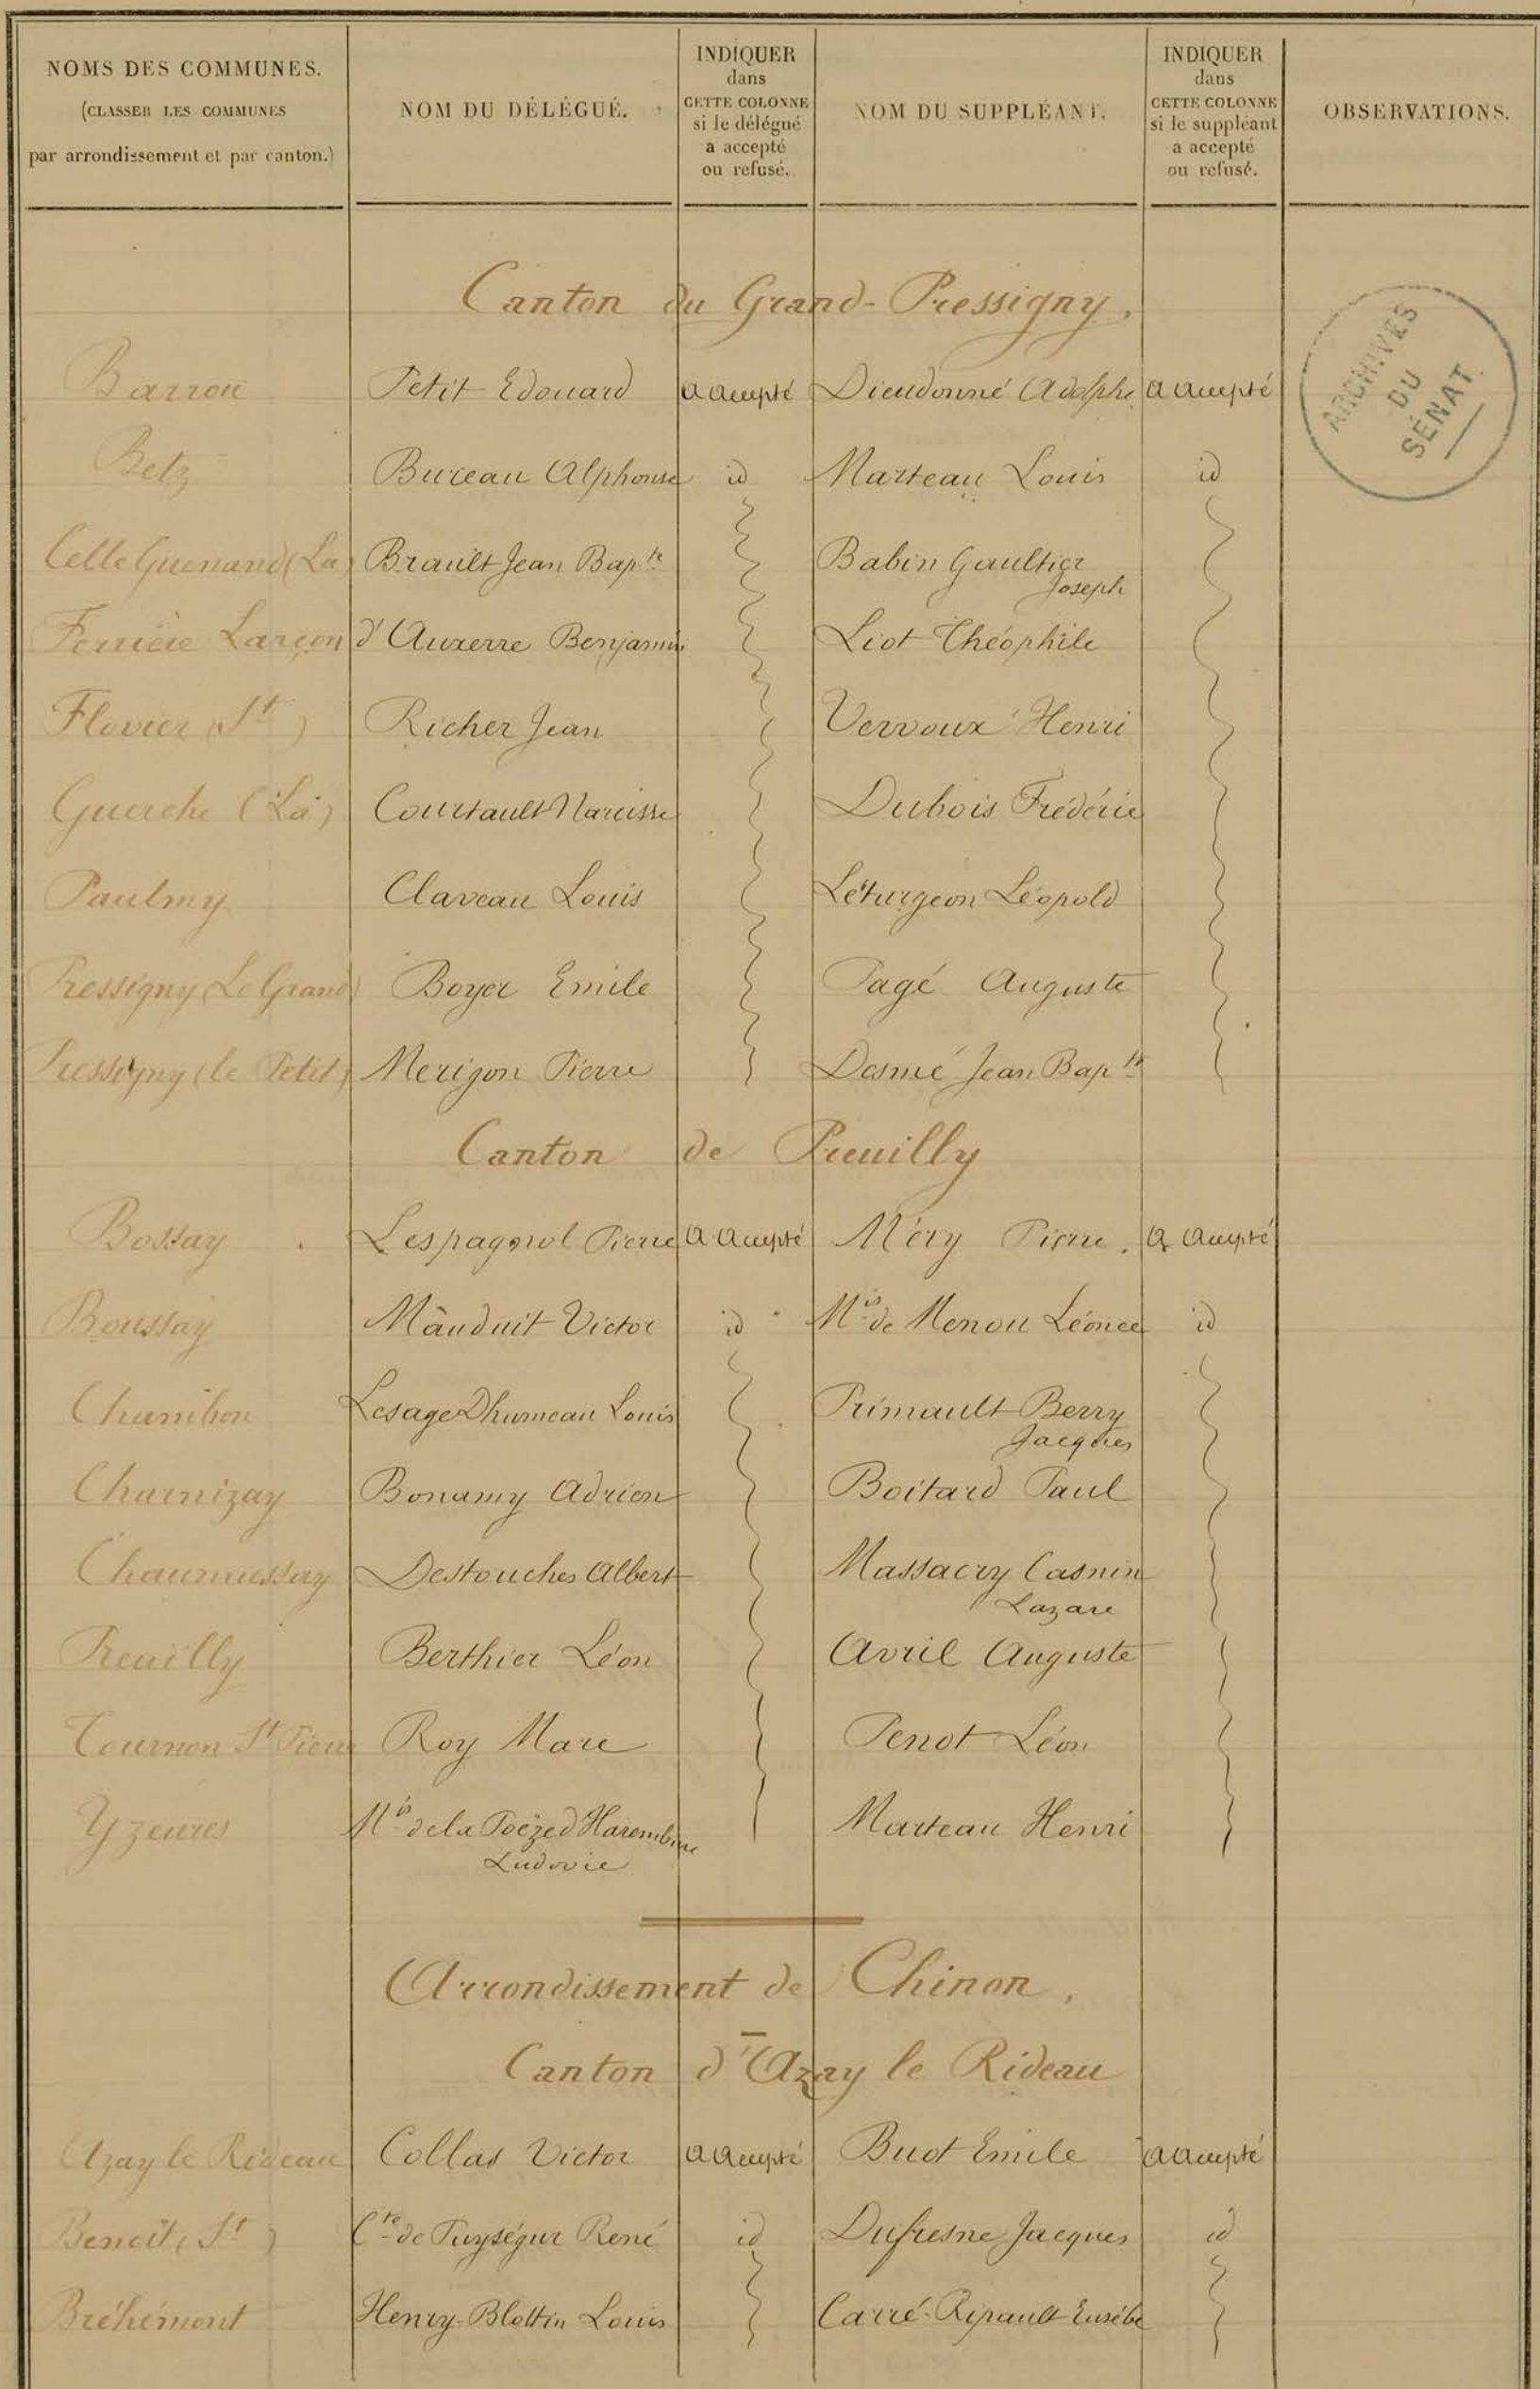 NOMS DES COMMUNES.
(CLASSER LES COMMUNES
par arrondissement et par canton.)
NOM DU DÉLÉGUÉ.
INDIQUER
dans
CETTE COLONNE
si le délégué
a accepté
ou refusé.
NOM DU SUPPLÉANT.
INDIQUER
dans
CETTE COLONNE
si le suppléant
a accepté
ou refusé.
OBSERVATIONS.
Canton du Grand-Pressigny.
ARCHIVES
DU
SÉNAT.
Barrou Petit Edouard a accepté Dieudonné Adolphe a accepté
Betz Bureau Alphonse id Marteau Louis id
Celle Guenand (La) Brault Jean Bapte Babin Gaultier
Joseph
Ferrière Larçon d'Auxerre Benjamin Liot Théophile
Flovier (St ) Richer Jean Vervoux Henri
Guerche (La) Courtault Narcisse Dubois Frédéric
Paulmy Claveau Louis Léturgeon Léopold
Pressigny (Le Grand) Boyer Emile Pagé Auguste
Pressigny (le Petit) Merigon Pierre Desmé Jean Bapte
Canton de Preuilly
Bossay Lespagnol Pierre a accepté Méry Pierre. a accepté
Boussay Mauduit Victor id Mis de Menou Léonce id
Chambon Lesage Dhumeau Louis Primault Berry
Jacques
Charnizay Bonamy Adrien Boitard Paul
Chaumussay Destouches Albert Massacry Casnin
Lazare
Preuilly Berthier Léon Avril Auguste
Tournon St Pierre Roy Marc Penot Léon
Yzeures Mis de la Poëze d'Harembure Marteau Henri
Ludovic
Arrondissement de Chinon.
Canton d'Azay le Rideau
Azay le Rideau Collas Victor a accepté Buot Emile a accepté
Benoît (St ) Cte de Puységur René id Dufresne Jacques id
Bréhémont Henry-Blottin Louis Carré-Ripault Eusèbe